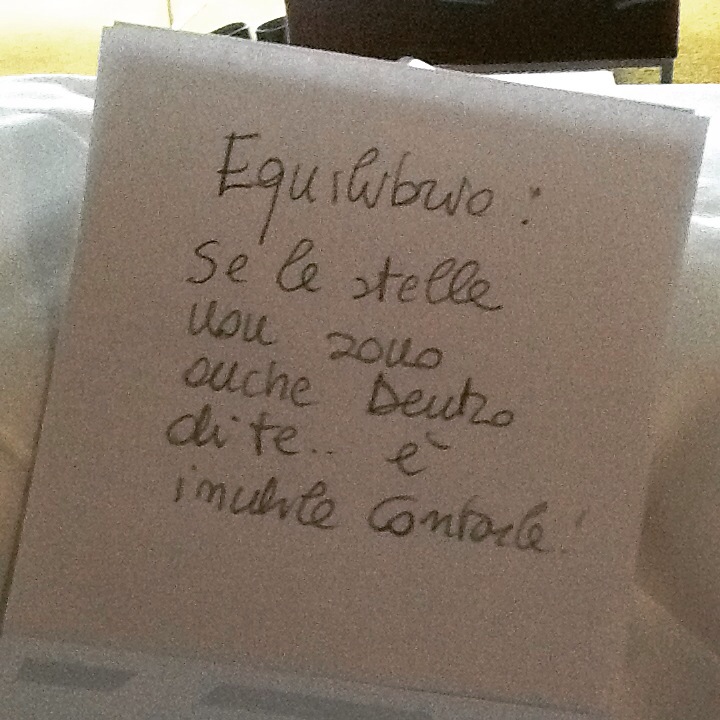 Equilibrio :
Se le stelle
non sono
anche Dentro
di te.. è
inutile Contarle!